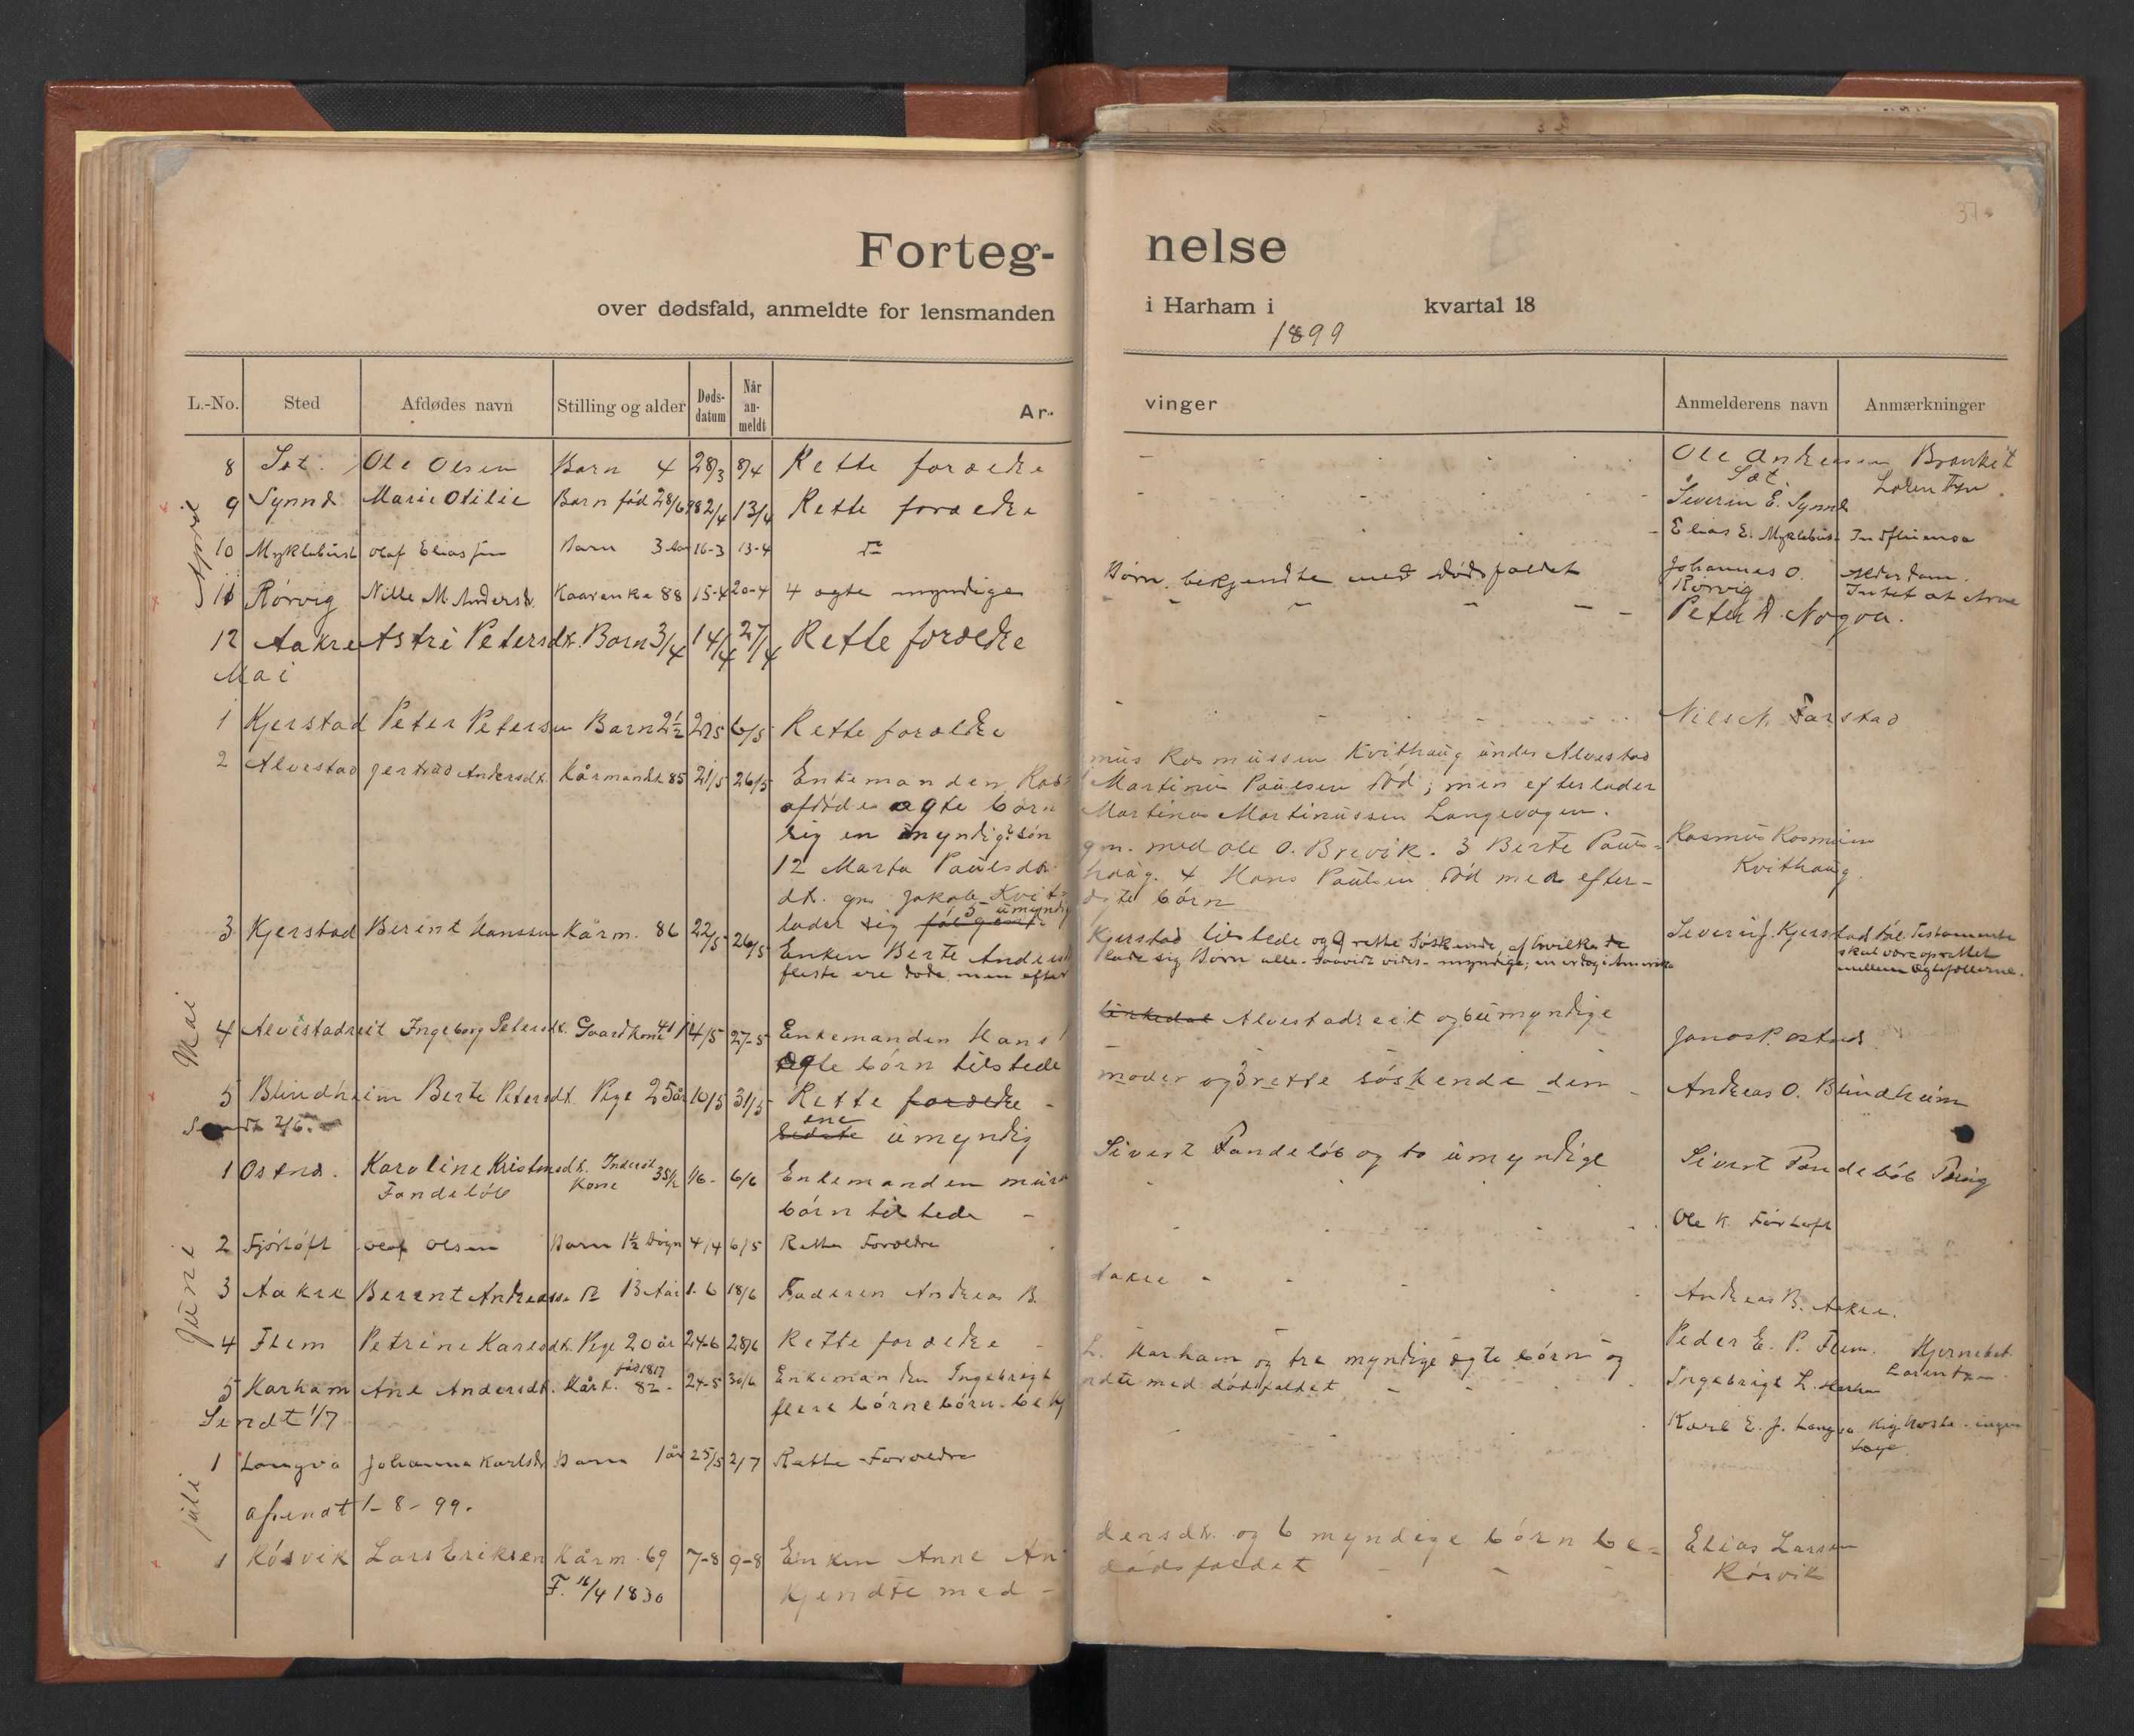 37
Forteg-
nelse
over dødsfald, anmeldte for lensmanden
i Harham i kvartal 18
1899
L.-No. Sted Afdødes navn Stilling og alder Døds-datum Når an-meldt Ar-
vinger Anmelderens navn Anmærkninger
April
8 Sæt. Ole Olsen Barn 4 28/3 8/4 Rette forældre
Ole Andreassen
Sæt
9 Synnes Marie Otilie Barn fød 28/6 98 2/4 13/4 Rette forældre
Severin E. Synnes
10 Myklebust Olaf Eliassen Barn 3 Aar 16-3 13-4 do
Elias E. Myklebust Indfluensa
11 Rørvig Nille M. Andersd. Kaarenke 88 15-4 20-4 4 ægte myndige
Børn bekjendte med dødsfaldet Johannes O. Alderdom.
Rørvig Intet at Arve
12 Aakre Astri Petersdt. Barn 3/4 14/4 27/4 Rette forældre
Peter A. Nogva.
Mai
1 Kjerstad Peter Petersen Barn 2½ 2/5 6/5 Rette forældre
Nils N. Farstad
2 Alvestad Gertrud Andersdt. Kårmandk 85 21/5 26/5 Enkemanden Ras
mus Rasmussen Kvithaug under Alvestad
afdødes ægte børn
Martinus Paulsen død; men efterlader
sig en myndig søn
Martinus Martinussen Langevagen.
12 Marta Paulsdtr.
gm. med Ole O. Brevik. 3 Berte Pauls-
dt. gm Jakob Kvit
haug. 4 Hans Paulsen død men efter-
lader sig følgende 5 umyndige
ægte børn
Rasmus Rasmussen
Kvithaug
3 Kjerstad Berent Hanssen Kårm. 86 22/5 26/5 Enken Berte Andersd
Kjerstad tilstede og 9 rette Søskende, af hvilke de
fleste ere døde men efter
lade sig Børn alle - saavidt vides - myndige; en er dog i Amerika
Severin J. Kjerstad
skal være oprettet
mellem Ægtefællerne.
Mai
4 Alvestadreit Ingeborg Petersdt. Gaardkone 41 14/5 27-5 Enkemanden Hans
Alvestadreit og 6 umyndige
Ægte børn tilstede
Jonas P. Østnes
5 Blindheim Berte Petersdt. Pige 25 år 10/5 31/5 Rette forældre
moder og 3 rette søskende den
ene umyndig
Andreas O. Blindheim
Sendt 2/6.
Juni
1 Østnes. Karoline Kristensdt. Inderst 35½ 1/6- 6/6 Enkemanden murer
Fandeløb Kone
Sivert Fandeløb og to umyndige
børn tilstede
Sivert Fandeløb
2 Fjørtoft Olaf Olsen Barn 1½ Døgn 4/4 6/5 Rette Forældre
Ole K. Fjørtoft
3 Aakre Berent Andreasse do 13 Aar 1-6 18/6 Faderen Andreas B.
Aakre
Andreas B. Aakre.
4 Flem Petrine Karlsdt. Pige 20 år 24-6 28/6 Rette forældre
Peder E. P. Flem. Hjernebet.
5 Harham Ane Andersdt. Kårk. 82 fød 1817 24-5 30/6 Enkemanden Ingebrigt
L. Harham og tre myndige ægte børn og
flere børnebørn. bekj
endte med dødsfaldet
Ingebrigt L. Harham
Sendt 1/7
Juli
1 Longva Johanna Karlsdt Barn 1 år 25/5 2/7 Rette Forældre
Karl E. J. Longva Kighoste. ingen
Læge
afsendt 1-8-99.
1 Røsvik Lars Eriksen Kårm. 69 7-8 9-8 Enken Anne An
F. 16/4 1830
dersdt. og 6 myndige børn be-
kjendte med
dødsfaldet
Elias Larsen
Røsvik